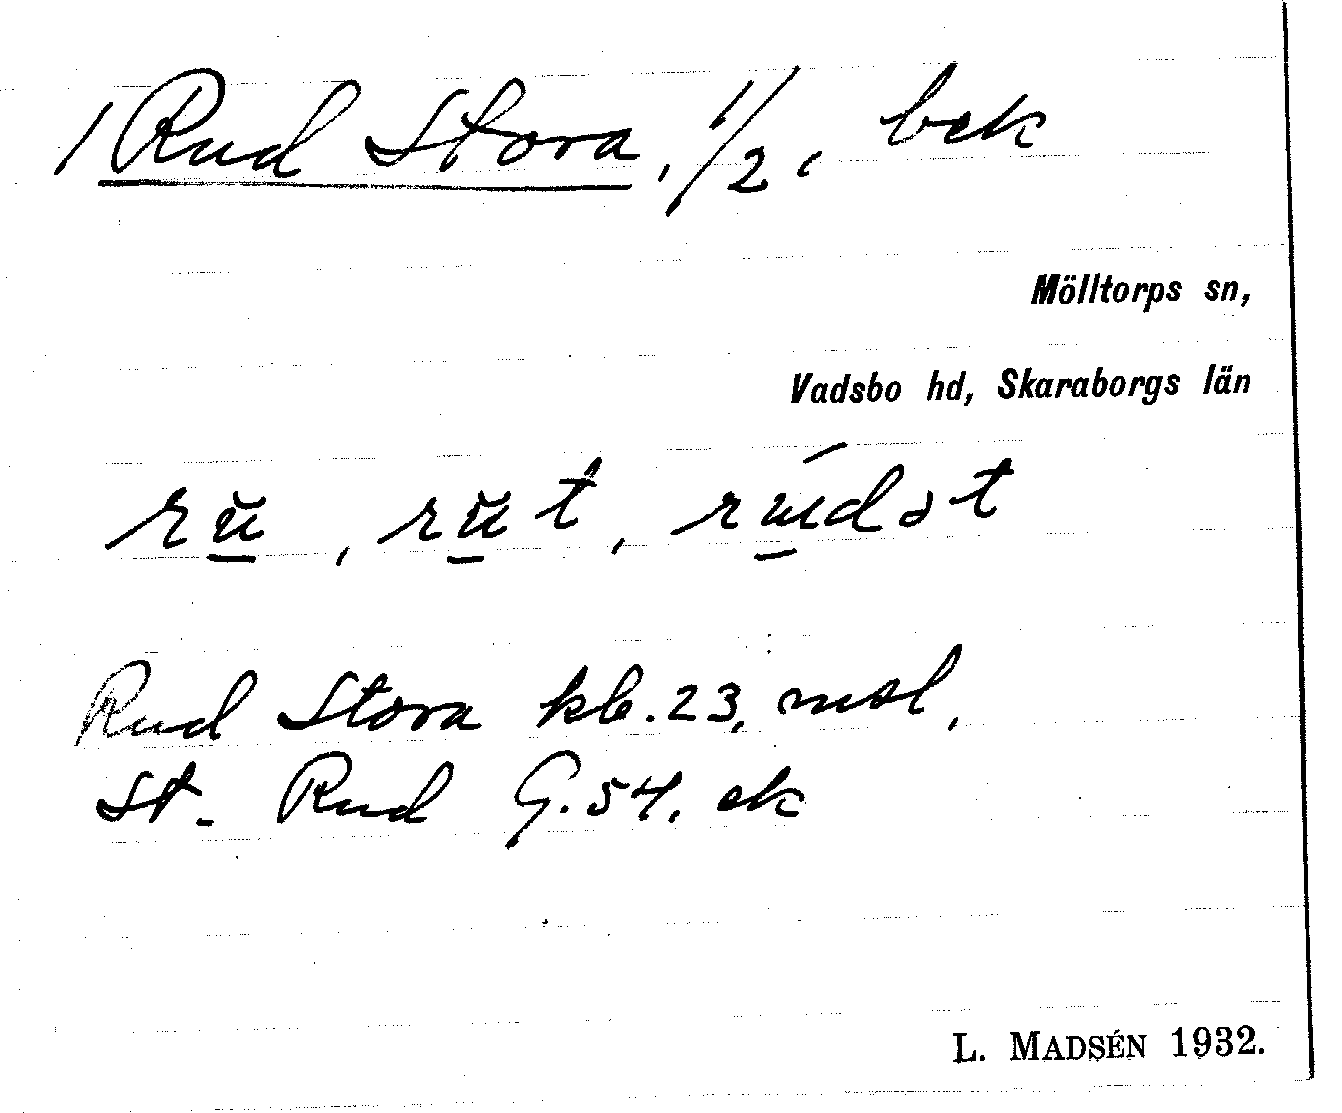 / Rud Stora, 1/2, bek
Mölltorps sn,
Vadsbo hd, Skaraborgs län
rŭ, rŭt, rúdət
Rud Stora kb. 23, msl,
St. Rud G. 54, ek
L. MADSÉN 1932.